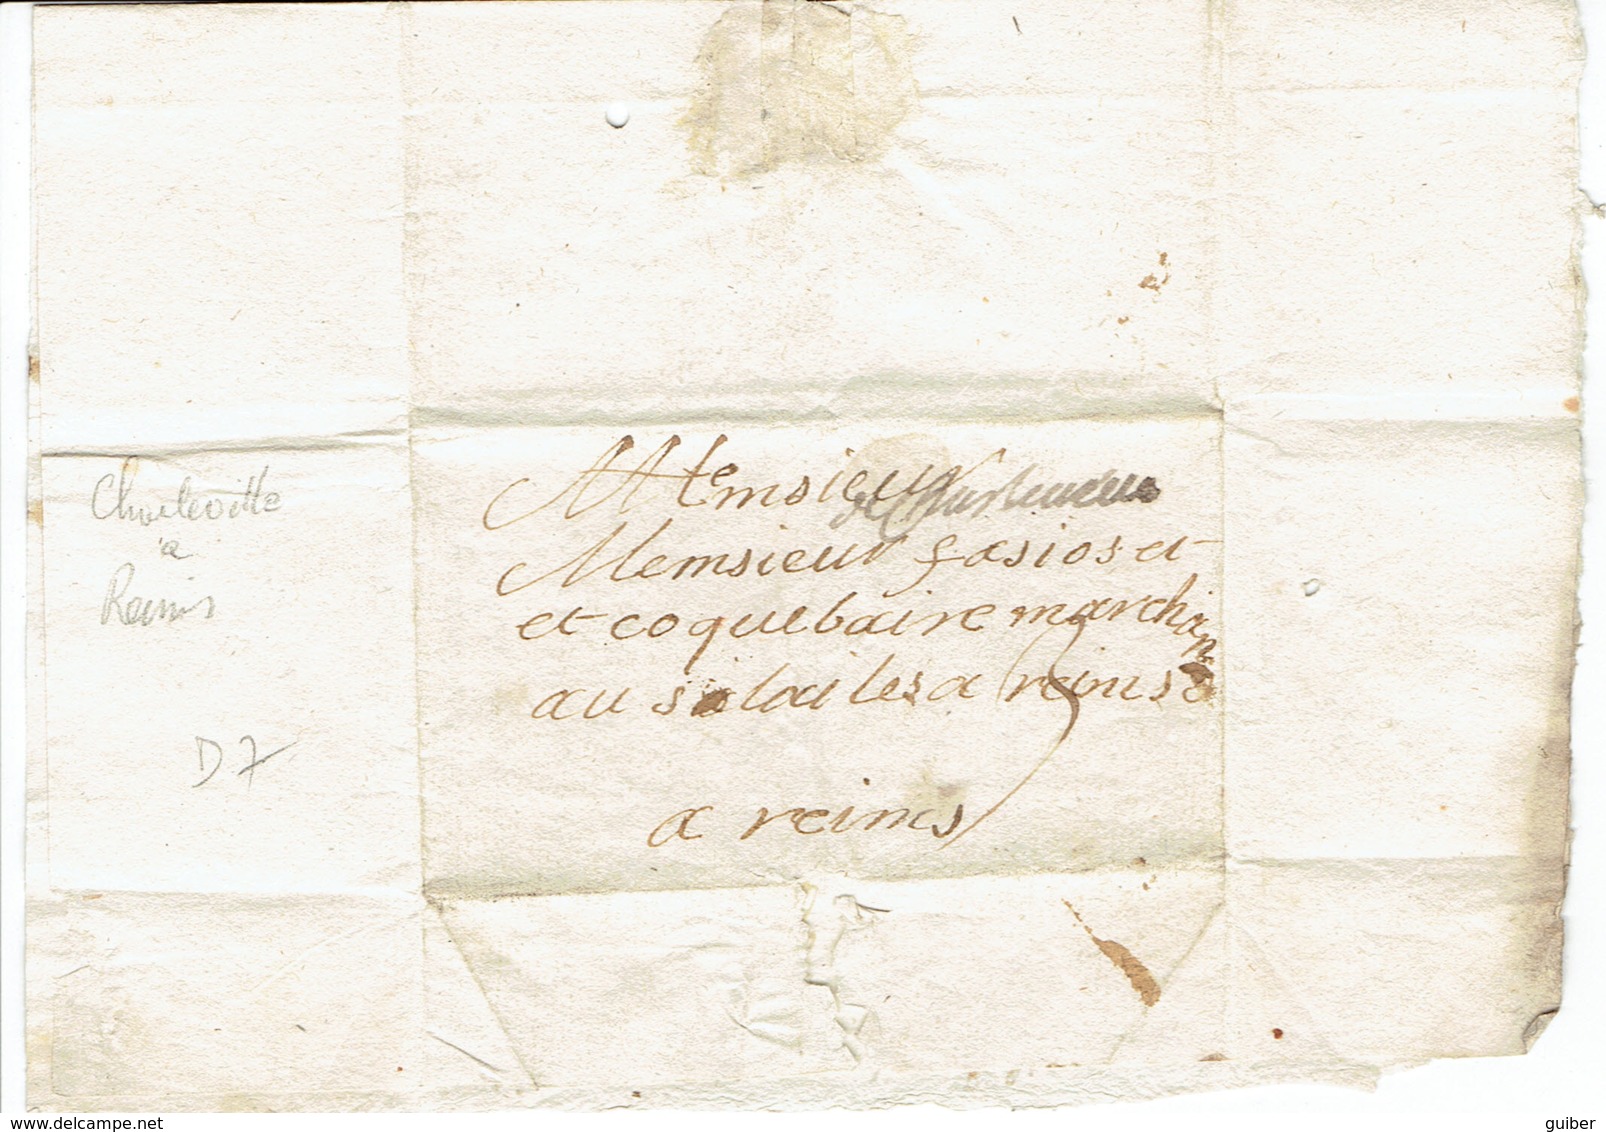 Charleville
a
Reims
D7
Memsieur
de Charleville
Memsieur fasios et
et coquebaire marchan
au solailes a reims
a reims
www.delcampe.net
guiber